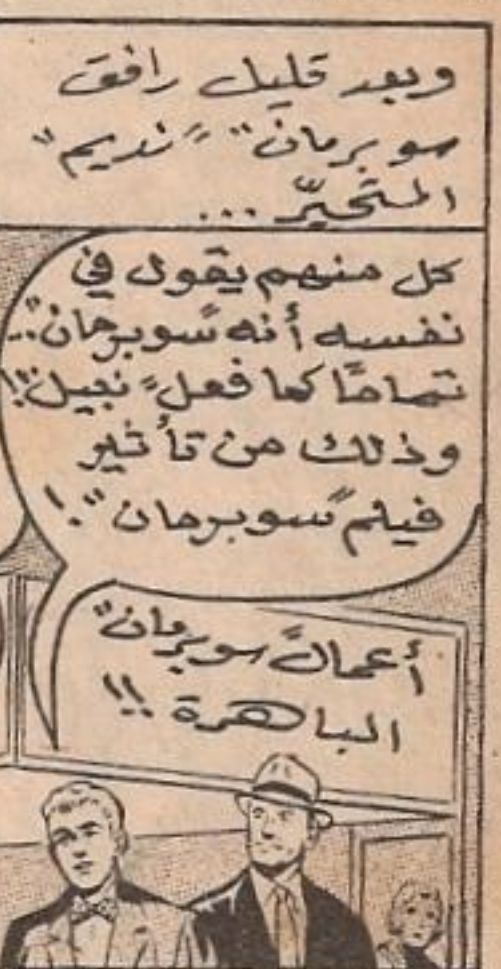 وبعد قليل رافق
سوبرمان" "نديم"
المتحيّر...
كل منهم يقول في
نفسه أنه "سوبرمان"..
تماما كما فعل "نبيل"!!
وذلك من تأثير
فيلم "سوبرمان"!.
أعمال "سوبرمان"
الباهرة!!